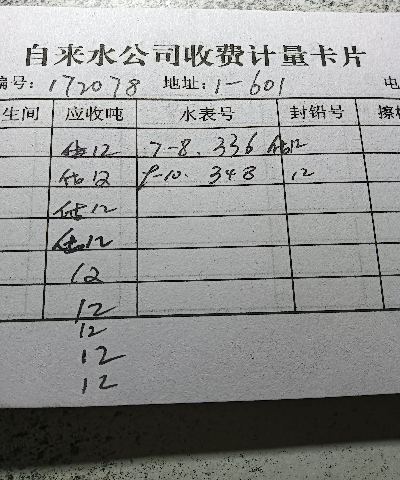 自来水公司收费计量卡片
编号: 172078 地址: 1-601 电
生间 应收吨 水表号 封铅号 擦
估12 7-8. 336 估12
估12 9-10. 348 12
估12
估12
12
12
12
12
12